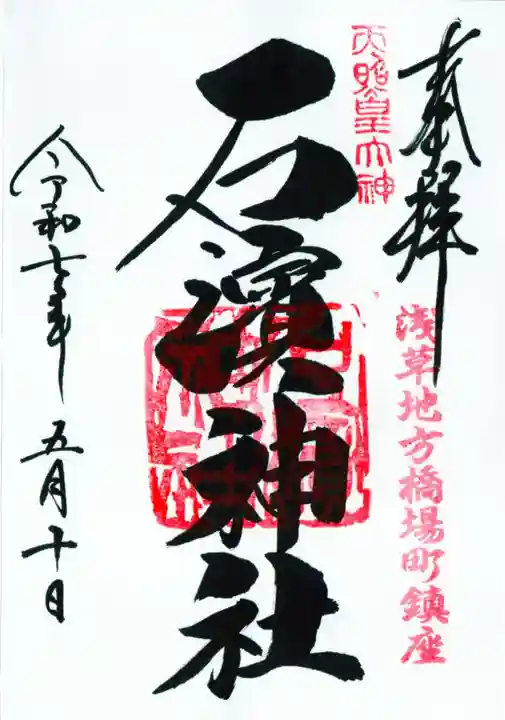 奉拝
浅草地方橋場町鎮座
天照皇大神
石濱神社
令和七年 五月十日